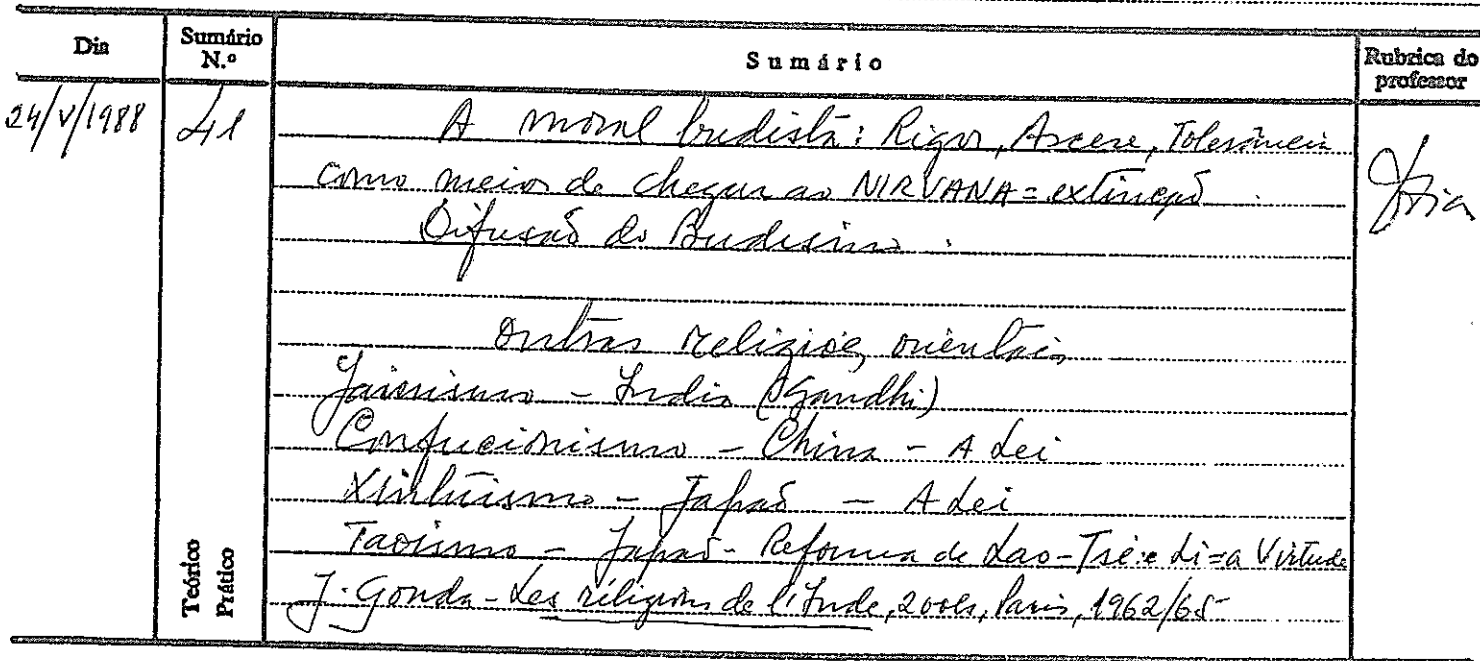 Dia Sumário N.º Sumário Rubrica do professor
24/V/1988 41 A moral budista: Rigor, Ascese, Tolerância
como meios de chegar ao NIRVANA = extinção.
Difusão do Budismo.
Outras religiões orientais
Jainismo - India (Gandhi)
Confucionismo - China - A Lei
Xintuísmo - Japão - A Lei
Taoismo - Japão - Reforma de Lao-Tsé: e Li = a Virtude
J. Gonda - Les religions de l'Inde, 2 vols, Paris, 1962/65
Teórico
Prático